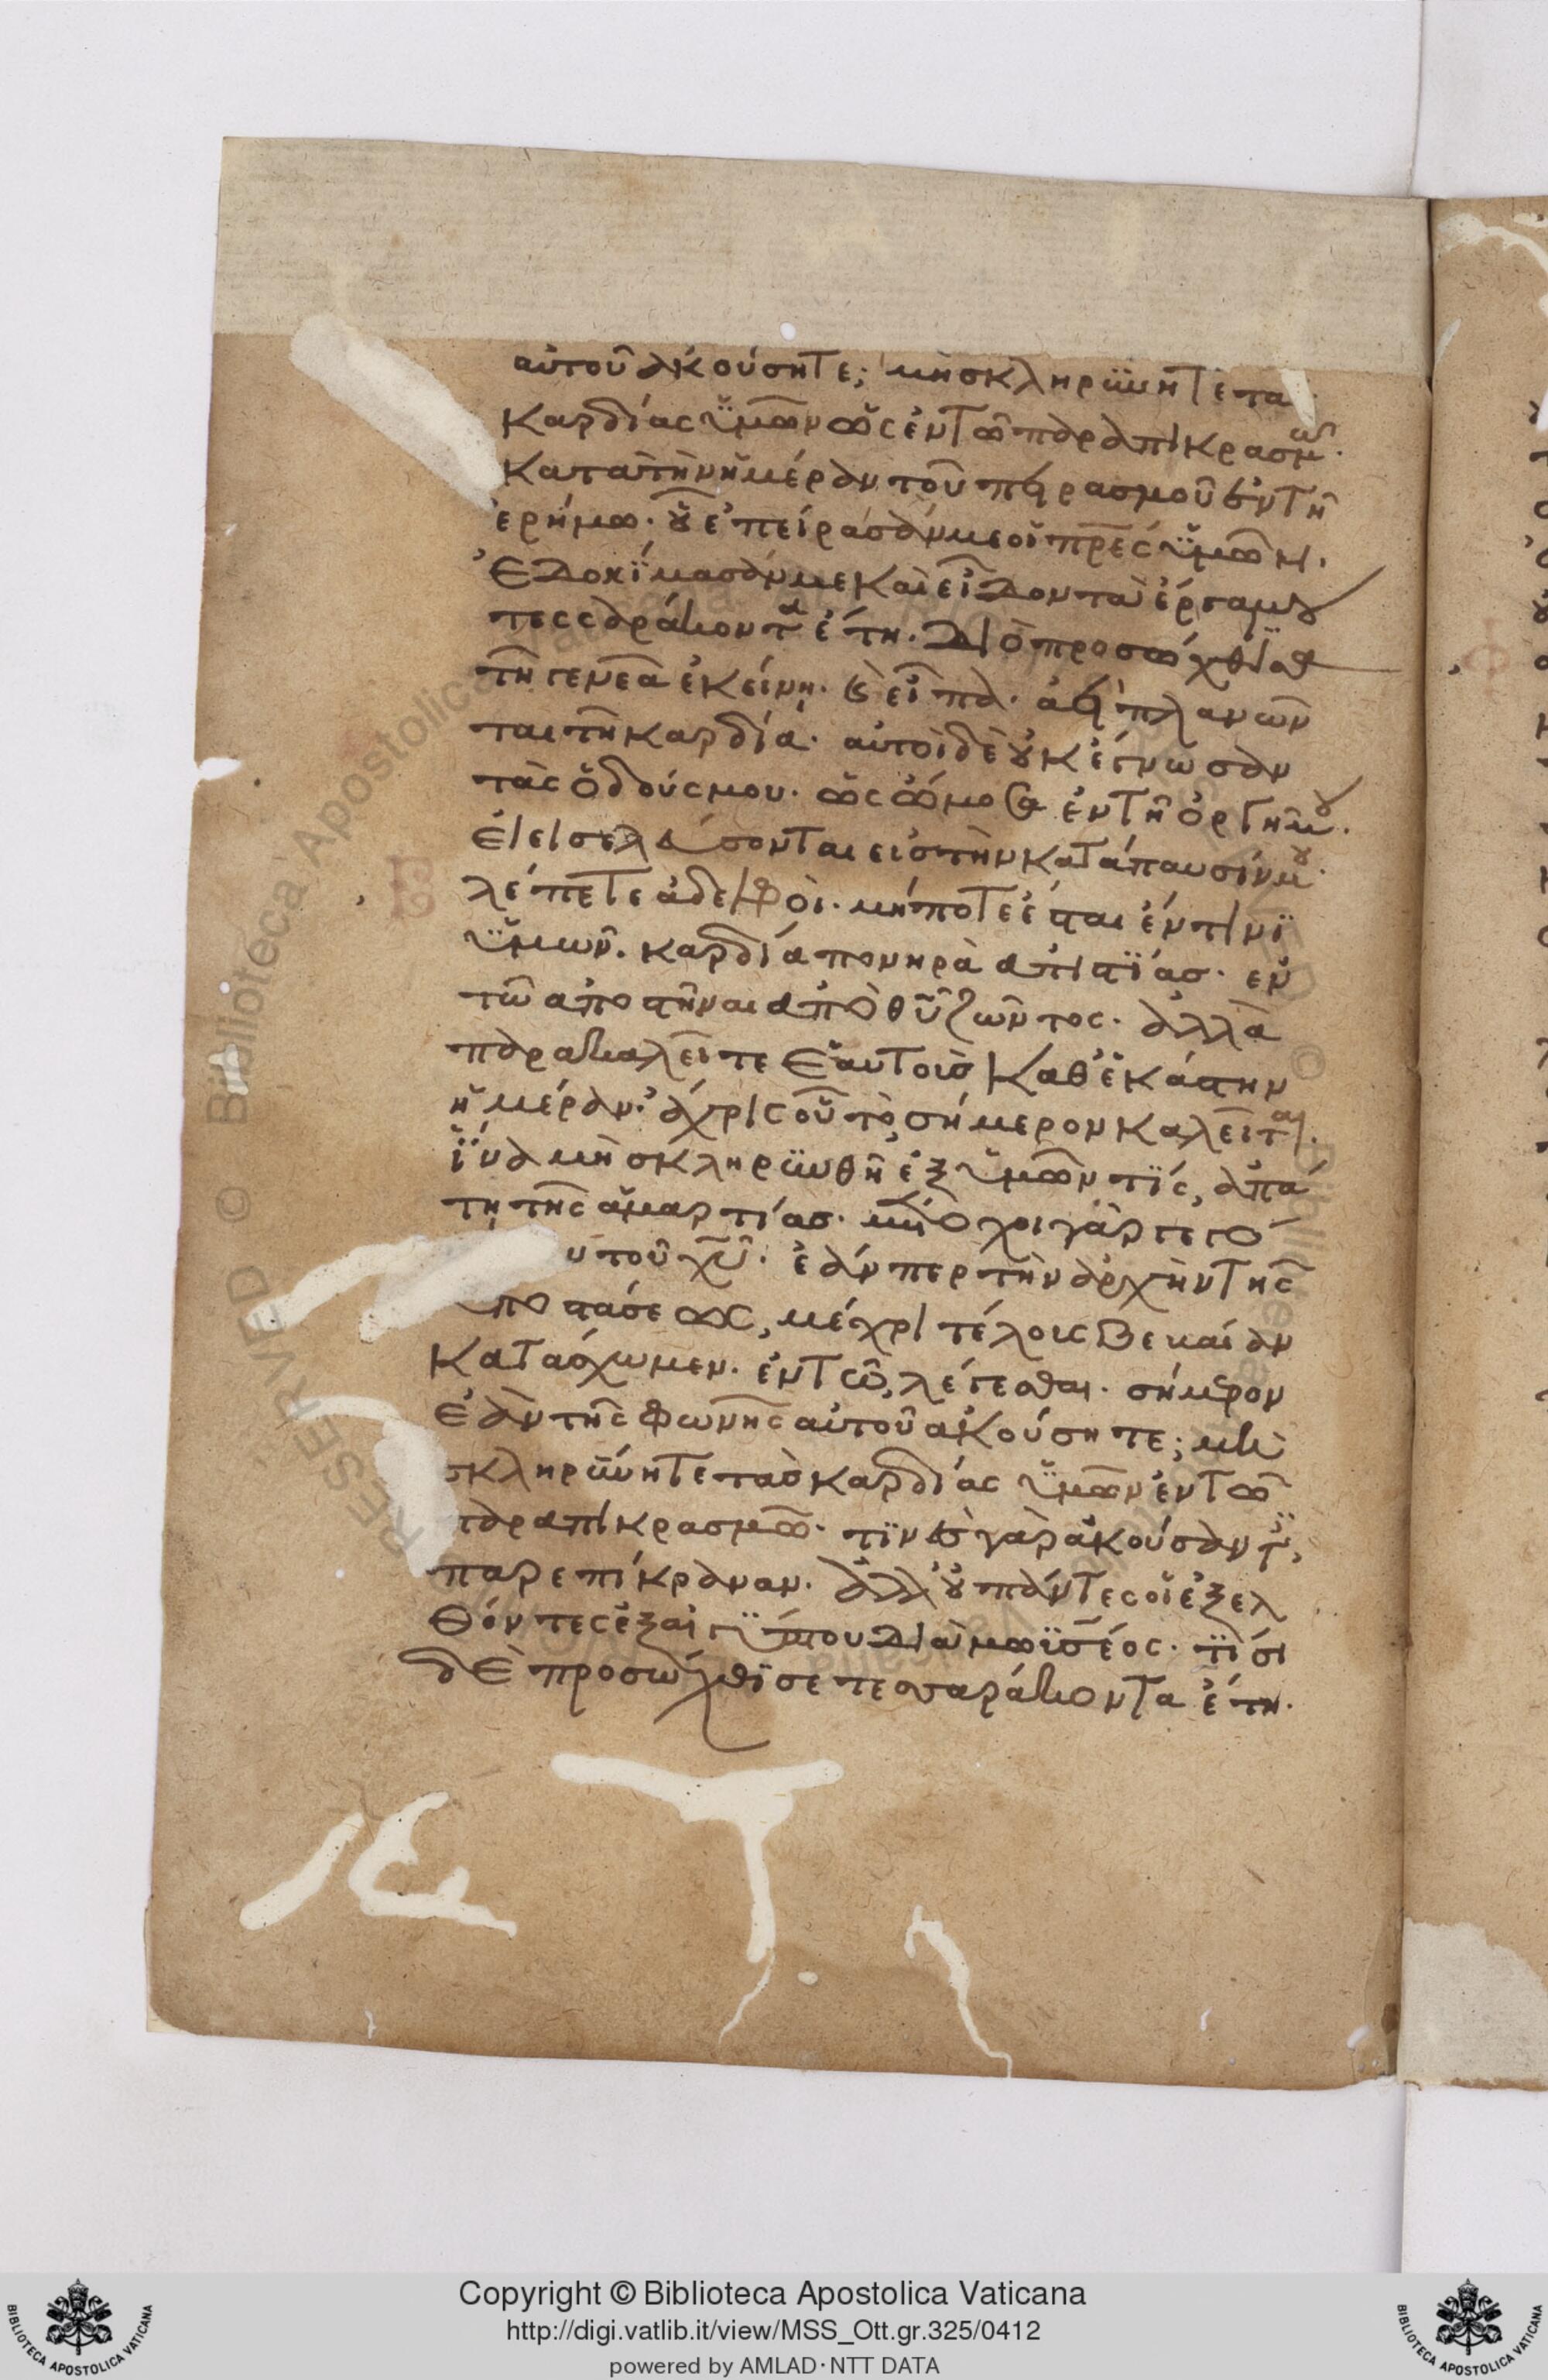 αὐτοῦ ἀκούσητε; μὴ σκληρϋνητὲ τὰ
καρδίας ϋμῶν ὡς ἐν τῶ παραπικρασμῶ.
κατὰ τὴν ἡμέραν τοῦ πειρασμοῦ ἐν τῆ
ἐρήμω. οὗ ἐπείρασάν με οἱ πρ̅ες ϋμῶν.
ἐδοκίμασάν με καὶ εἶδον τὰ ἔργα μου
τεσσαράκοντα ἔτη. Διὸ προσώχθϊσα
τῆ γενεᾶ ἐκείνη. καὶ εἶπα. ἀεὶ πλανῶν
ται τῆ καρδία. αὐτοὶ δὲ οὐκ ἔγνωσαν
τὰς ὁδούς μου. ὡς ὤμοσα ἐν τῆ ὀργῆ μου.
εἰ εἰσελεύσονται εἰς τὴν κατάπαυσίν μου.
λέπετε ἀδελφοὶ. μήποτε ἔσται ἔν τινϊ
ϋμων. καρδία πονηρὰ ἀπιστϊάσ. ἐν
τῶ ἀποστῆναι ἀπὸ θ̅υ̅ ζῶντος. ἀλλὰ
παρακαλεῖτε ἑαυτοισ καθ' ἑκάστην
ἡμέραν. ἄχρις οὗ τὸ, σήμερον καλεῖται.
ϊνα μὴ σκληρϋνθῆ ἐξ ϋμῶν τϊς, ἀπά
τη τῆς ἁμαρτίασ. μέτοχοι γὰρ γεγό
υ τοῦ χ̅υ̅. ἐάνπερ τὴν ἀρχὴν τῆς
ϋποστάσεως, μέχρι τέλους βεκαίαν
κατάσχωμεν. ἐν τῶ, λέγεσθαι. σήμερον
ἐὰν τῆς φωνῆς αὐτοῦ ἀκούσητε; μὴ
σκληρϋνητε τὰσ καρδίας ϋμῶν ἐν τῶ
παραπικρασμῶ. τϊνὲσ γὰρ ἀκούσαντ,
παρεπίκραναν. ἀλλ' οὐ πάντες οἱ ἐξελ
θόντες ἐξ αἰγϋπτου διὰ μωϋσέος. τϊσι
δὲ προσώχθϊσε τεσσαράκοντα ἔτη.
Copyright © Biblioteca Apostolica Vaticana
http://digi.vatlib.it/view/MSS_Ott.gr.325/0412
powered by AMLAD·NTT DATA